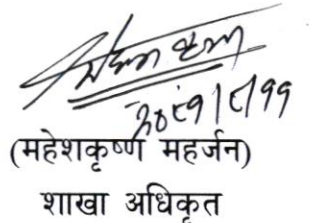 २०८१।८।११
(महेशकृष्ण महर्जन)
शाखा अधिकृत